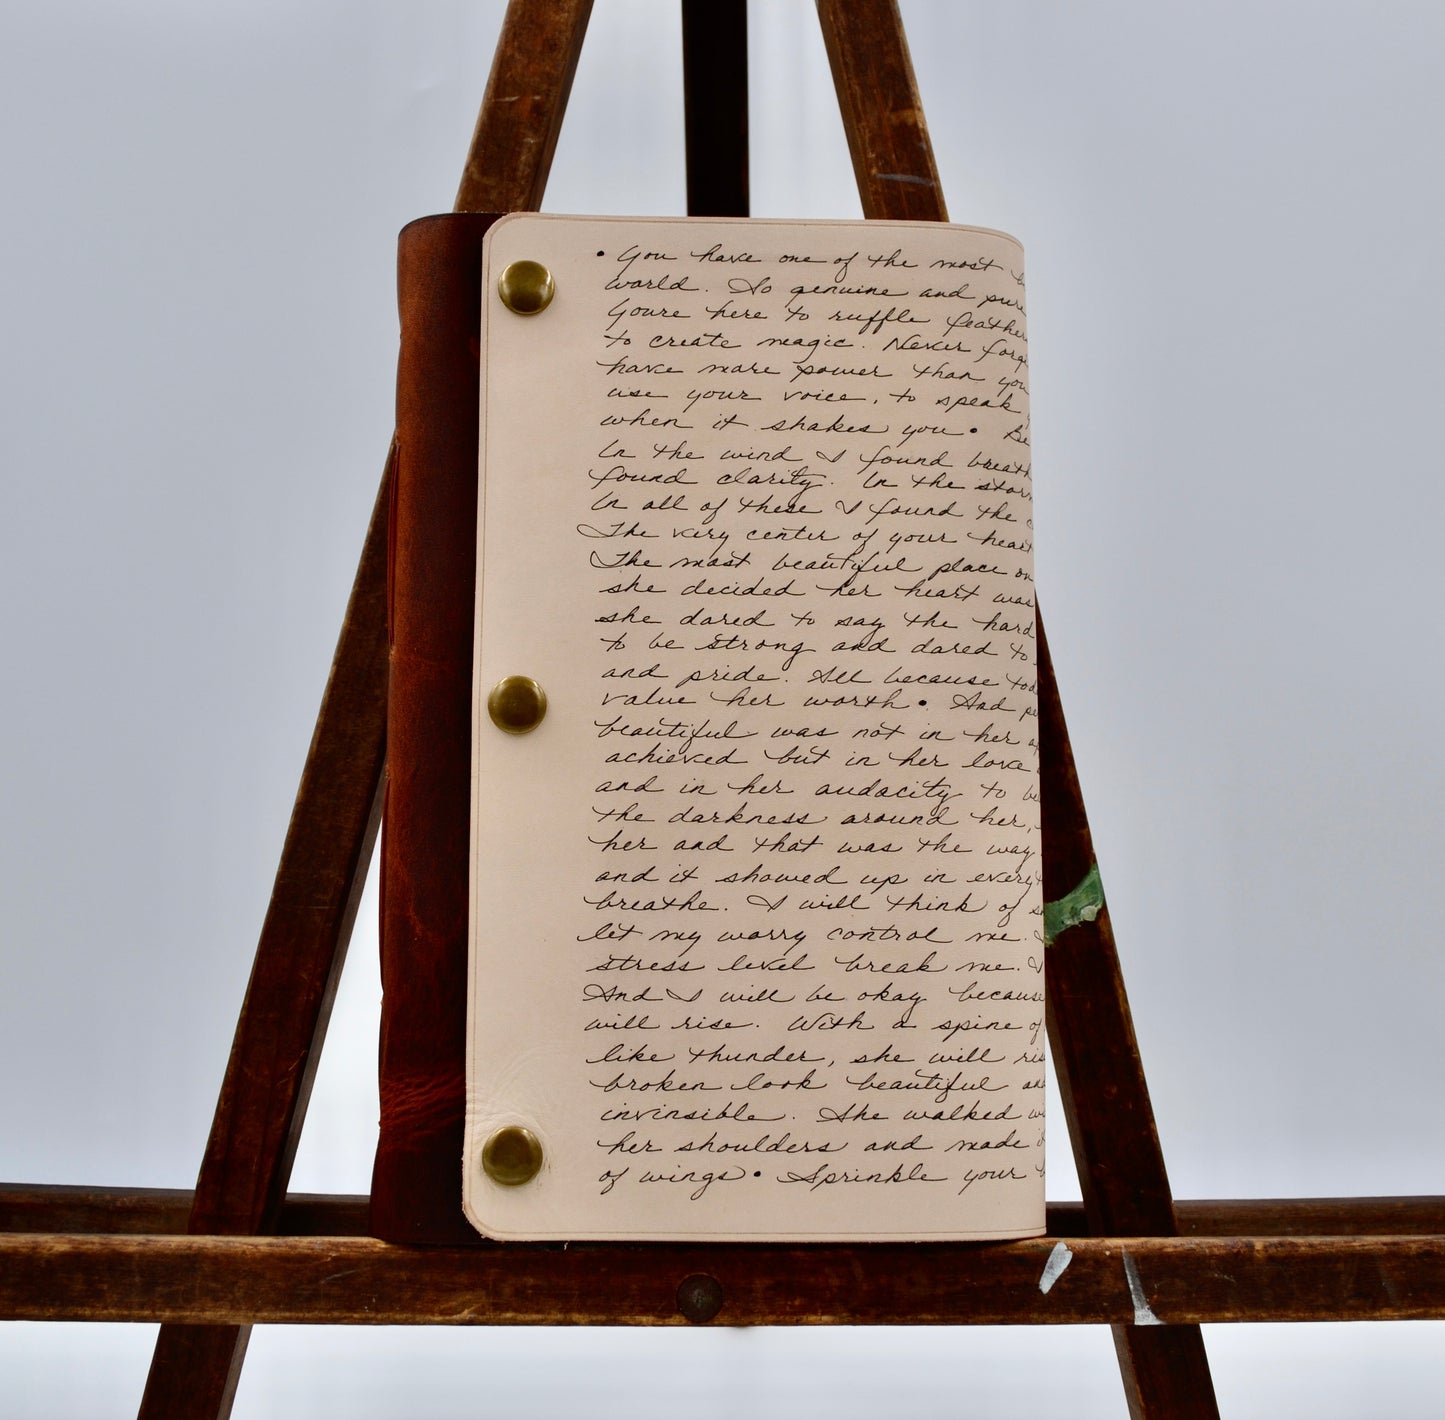 • You have one of the most
world. So genuine and pure
Youre here to ruffle feather
to create magic. Never forge
have more power than you
use your voice, to speak
when it shakes you • Be
In the wind I found breath
found clarity. In the storm
In all of these I found the
The very center of your heart
The most beautiful place on
she decided her heart was
she dared to say the hard
to be strong and dared to
and pride. All because toda
value her worth • And pe
beautiful was not in her
achieved but in her love
and in her audacity to be
the darkness around her,
her and that was the way
and it showed up in everyt
breathe. I will think of
let my worry control me.
stress level break me. I
And I will be okay because
will rise. With a spine of
like thunder, she will ris
broken look beautiful and
invinsible. She walked
her shoulders and made
of wings • Sprinkle your